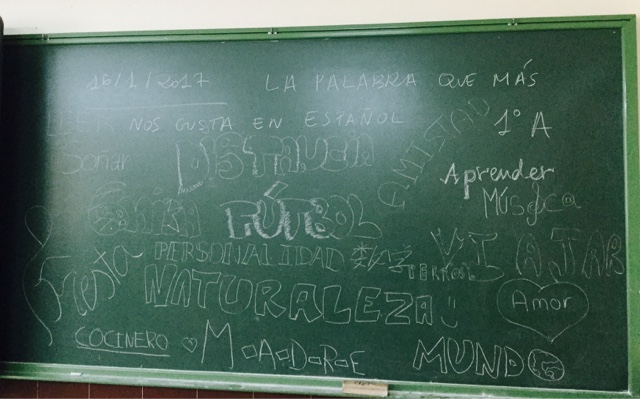 16/1/2017 LA PALABRA QUE MÁS
NOS GUSTA EN ESPAÑOL 1º A
Soñar DISTANCIA AMISTAD
Aprender
Música
FÚTBOL
PERSONALIDAD VIAJAR
Fiesta
NATURALEZA
Amor
COCINERO MADRE MUNDO